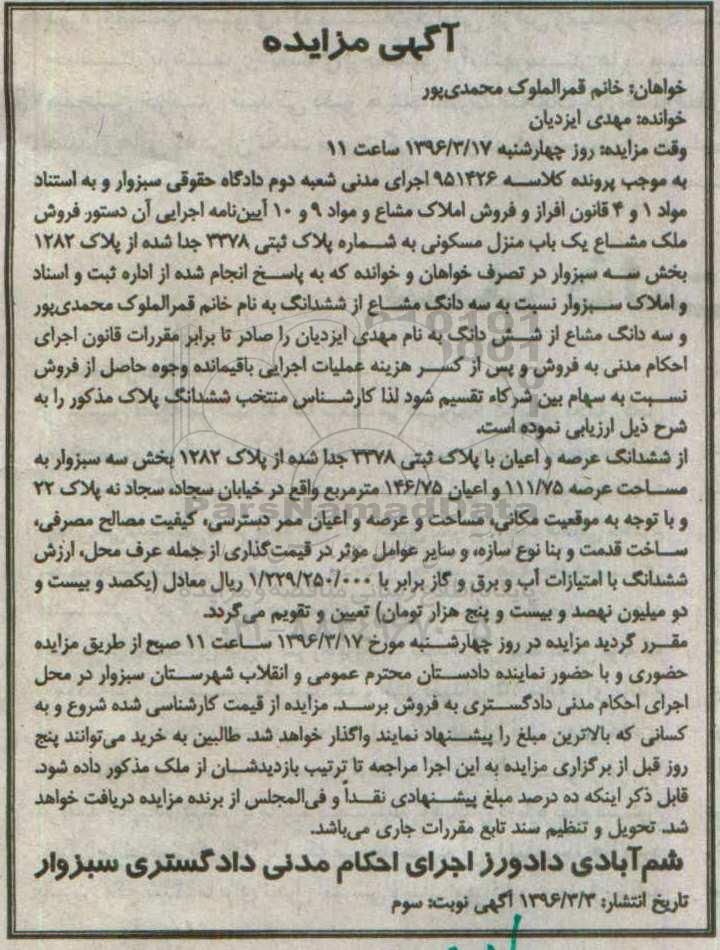 آگهی مزایده
خواهان: خانم قمرالملوک محمدی‌پور
خوانده: مهدی ایزدیان
وقت مزایده: روز چهارشنبه ۱۳۹۶/۳/۱۷ ساعت ۱۱
به موجب پرونده کلاسه ۹۵۱۴۲۶ اجرای مدنی شعبه دوم دادگاه حقوقی سبزوار و به استناد
مواد ۱ و ۴ قانون افراز و فروش املاک مشاع و مواد ۹ و ۱۰ آیین‌نامه اجرایی آن دستور فروش
ملک مشاع یک باب منزل مسکونی به شماره پلاک ثبتی ۳۳۷۸ جدا شده از پلاک ۱۲۸۲
بخش سه سبزوار در تصرف خواهان و خوانده که به پاسخ انجام شده از اداره ثبت و اسناد
و املاک سبزوار نسبت به سه دانگ مشاع از ششدانگ به نام خانم قمرالملوک محمدی‌پور
و سه دانگ مشاع از شش دانگ به نام مهدی ایزدیان را صادر تا برابر مقررات قانون اجرای
احکام مدنی به فروش و پس از کسر هزینه عملیات اجرایی باقیمانده وجوه حاصل از فروش
نسبت به سهام بین شرکاء تقسیم شود لذا کارشناس منتخب ششدانگ پلاک مذکور را به
شرح ذیل ارزیابی نموده است.
از ششدانگ عرصه و اعیان با پلاک ثبتی ۳۳۷۸ جدا شده از پلاک ۱۲۸۲ بخش سه سبزوار به
مساحت عرصه ۱۱۱/۷۵ و اعیان ۱۴۶/۷۵ مترمربع واقع در خیابان سجاد، سجاد نه پلاک ۲۲
و با توجه به موقعیت مکانی، مساحت و عرصه و اعیان ممر دسترسی، کیفیت مصالح مصرفی،
ساخت قدمت و بنا نوع سازه، و سایر عوامل موثر در قیمت‌گذاری از جمله عرف محل، ارزش
ششدانگ با امتیازات آب و برق و گاز برابر با ۱/۲۲۹/۲۵۰/۰۰۰ ریال معادل (یکصد و بیست و
دو میلیون نهصد و بیست و پنج هزار تومان) تعیین و تقویم می‌گردد.
مقرر گردید مزایده در روز چهارشنبه مورخ ۱۳۹۶/۳/۱۷ ساعت ۱۱ صبح از طریق مزایده
حضوری و با حضور نماینده دادستان محترم عمومی و انقلاب شهرستان سبزوار در محل
اجرای احکام مدنی دادگستری به فروش برسد. مزایده از قیمت کارشناسی شده شروع و به
کسانی که بالاترین مبلغ را پیشنهاد نمایند واگذار خواهد شد. طالبین به خرید می‌توانند پنج
روز قبل از برگزاری مزایده به این اجرا مراجعه تا ترتیب بازدیدشان از ملک مذکور داده شود.
قابل ذکر اینکه ده درصد مبلغ پیشنهادی نقداً و فی‌المجلس از برنده مزایده دریافت خواهد
شد. تحویل و تنظیم سند تابع مقررات جاری می‌باشد.
شم‌آبادی دادورز اجرای احکام مدنی دادگستری سبزوار
تاریخ انتشار: ۱۳۹۶/۳/۳ آگهی نوبت: سوم
ParsNamadData